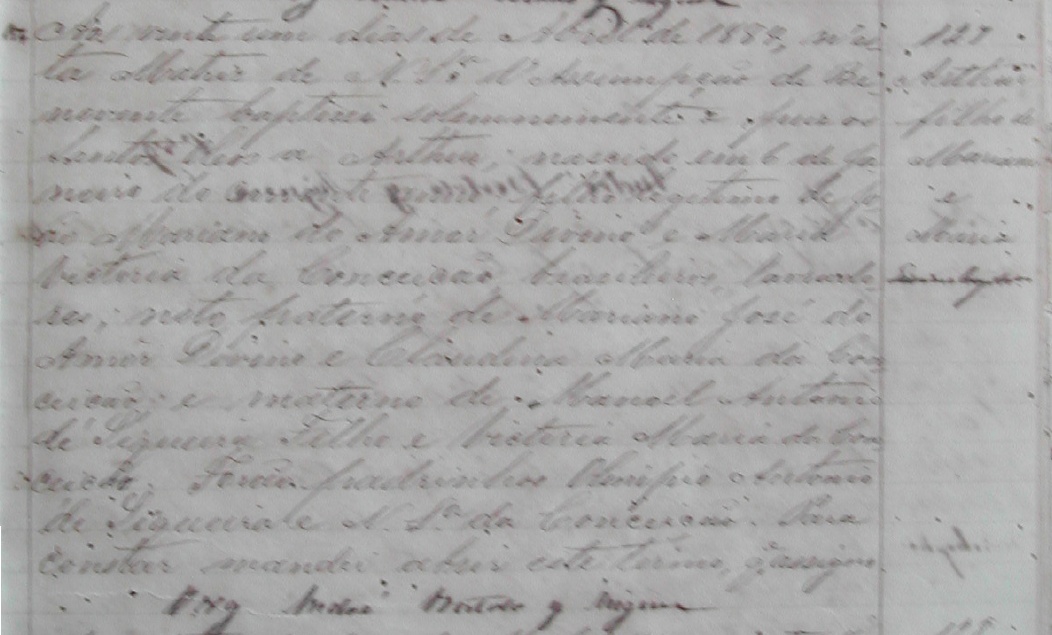 Aos vinte um dias de Abril de 1889, n'es-
ta Matriz de N. Sra. d'Assumpção de Be-
nevente baptizei solemnemente e puz os
Santos Oleos a Arthur, nascido em 6 de Ja-
neiro do corrente anno, filho legitimo de Jo-
ão Mariano do Amor Divino e Maria
Victoria da Conceição, brasileiros, lavrado-
res; neto paterno de Mariano José do
Amor Divino e Claudina Maria da Con-
ceição; e materno de Manoel Antonio
de Siqueira Filho e Victoria Maria da Con-
ceição. Forão padrinhos Olimpio Antonio
de Siqueira e N. Sra. da Conceição. Para
constar mandei abrir este termo, q' assigno.
127
Arthur
filho de
Mariano
e
Maria